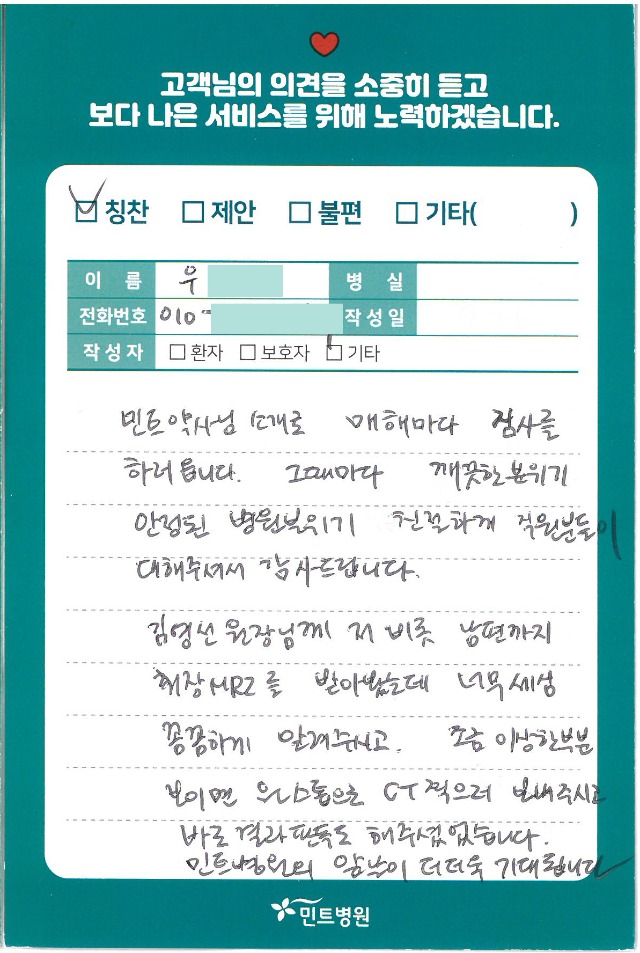 고객님의 의견을 소중히 듣고
보다 나은 서비스를 위해 노력하겠습니다.
칭찬 제안 불편 기타( )
이 름 우 병 실
전화번호 010- 작성일
작성자 환자 보호자 기타
민트약사님 소개로 매해마다 검사를
하러 옵니다. 그때마다 깨끗한 분위기
안정된 병원분위기 친절하게 직원분들이
대해주셔서 감사드립니다.
김영선 원장님께 저 비롯 남편까지
췌장MRI를 받아봤는데 너무 세심
꼼꼼하게 알려주시고. 조금 이상한부분
보이면 원스톱으로 CT 찍으러 보내주시고
바로 결과판독도 해주셨었습니다.
민트병원의 앞날이 더더욱 기대됩니다
민트병원